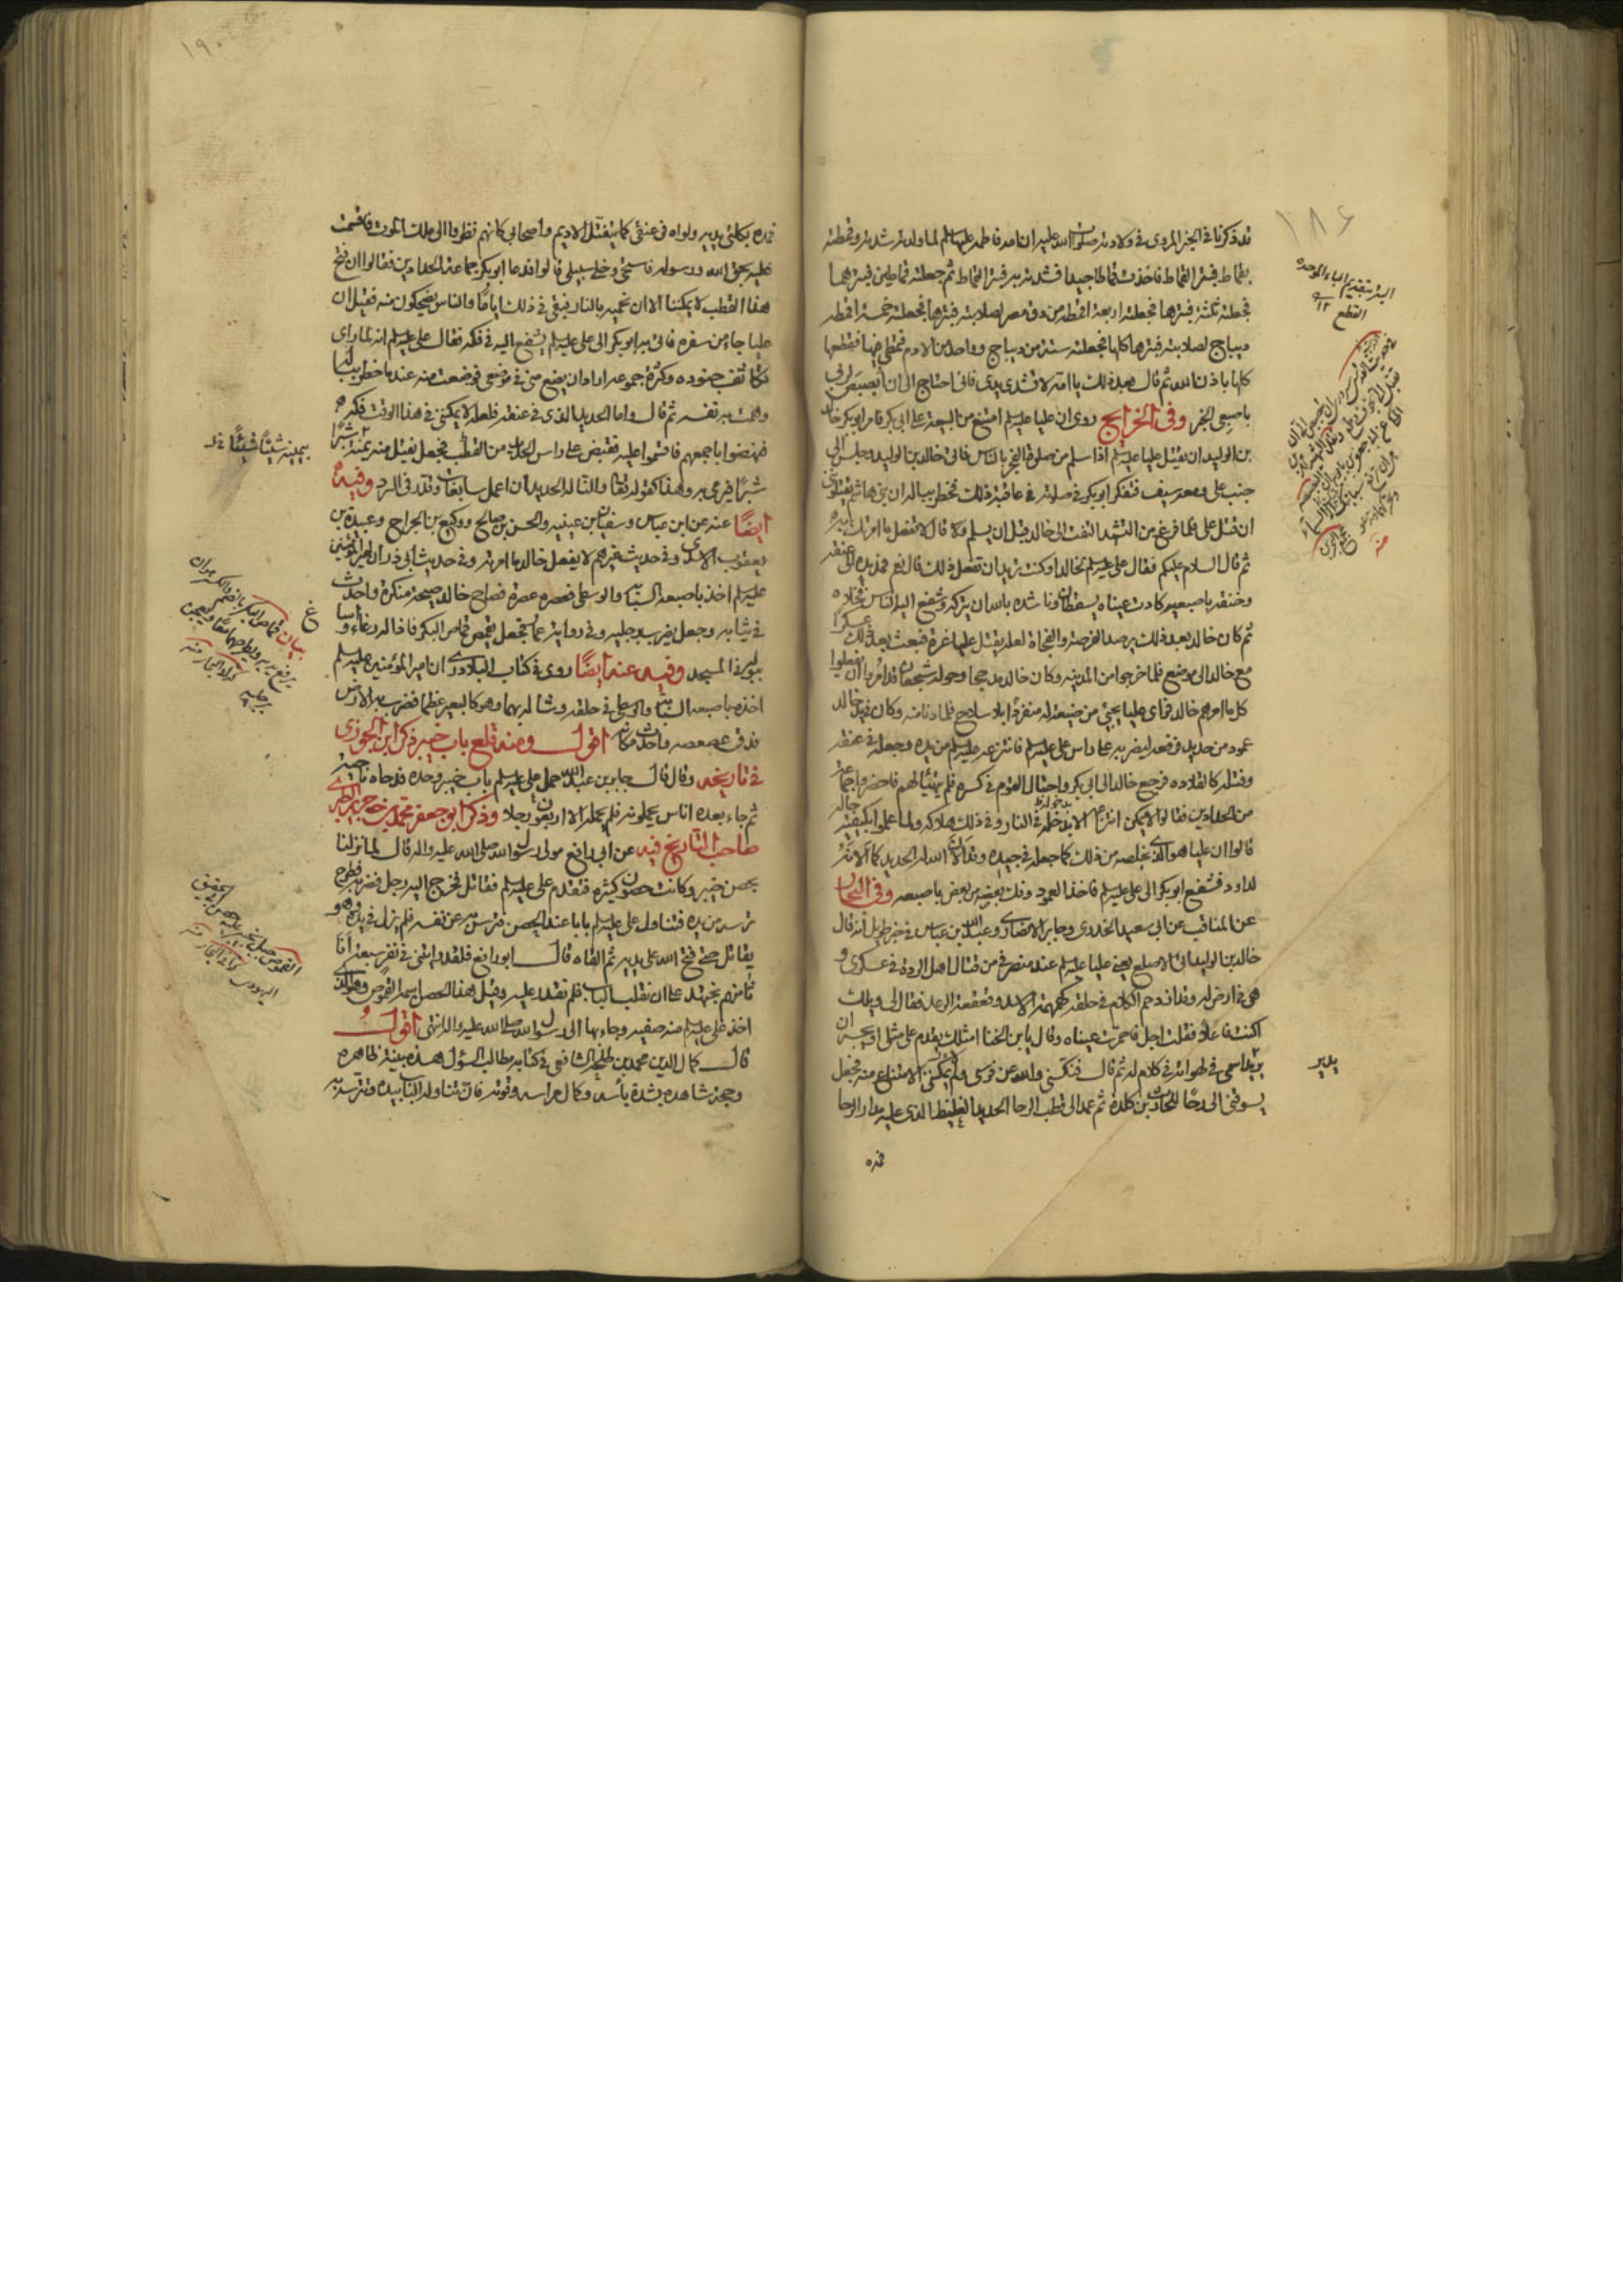 قد ذكرنا في الخبر المروي في ولادته صلوات الله عليه ان امه فاطمه عليها السلم لما ولدته شدته وقمطته
بقماط فبتر القماط فاخذت قماطا جيدا فشدته به فبتر القماط ثم جعلته قماطين فبترهما
فجعلته ثلثة فبترها فجعلته اربعة اقمطة من رق مصر لصلابته فبترها فجعلته خمسة اقمطة
ديباج لصلابته فبترها كلها فجعلته ستة من ديباج وواحدا من الادم فتمطى فيها فقطعها
كلها باذن الله ثم قال بعد ذلك يا امه لا تشدي يدي فاني احتاج الى ان ابصبص لربي
باصبعي الخبر وفي الخرايج روي ان عليا عليه السلم امتنع من البيعة على ابي بكر فامر ابو بكر خالد
بن الوليد ان يقتل عليا عليه السلم اذا سلم من صلوة الفجر بالناس فاتى خالد بن الوليد وجلس الى
جنب علي ومعه سيف فتفكر ابو بكر في صلوته في عاقبة ذلك فخطر بباله ان بني هاشم يقتلونني
ان قتل علي فلما فرغ من التشهد التفت الى خالد قبل ان يسلم وقال لا تفعل ما امرتك به
ثم قال السلام عليكم فقال علي عليه السلم لخالد اوكنت تريد ان تفعل ذلك قال نعم فمد يده الى عنقه
وخنقه باصبعيه كادت عيناه يسقطان وناشده بالله ان يتركه وشفع اليه الناس فخلاه
ثم كان خالد بعد ذلك يرصد الفرصة والفجاة لعله يقتل عليا غرة فبعث بعد ذلك عسكرا
مع خالد الى موضع فلما خرجوا من المدينه وكان خالد مدججا وحوله شجعان قد امروا ان يفعلوا
كل ما امرهم خالد فراى عليا يجيئ من ضيعة له منفردا بلا سلاح فلما دنا منه وكان في يد خالد
عمود من حديد فرفعه ليضربه على راس علي عليه السلم فانتزعه عليه السلم من يده وجعله في عنقه
وفتله كالقلادة فرجع خالد الى ابي بكر واحتال القوم في كسره فلم يتهيأ لهم فاحضروا جماعة
من الحدادين فقالوا لا يمكن انتزاعه الا بعد حله في النار وفي ذلك هلاكه ولما علموا بكيفية حاله
قالوا ان عليا هو الذي يخلصه من ذلك كما جعله في جيده وقد الان الله له الحديد كما الانه
لداود فشفع ابو بكر الى علي عليه السلم فاخذ العمود وفك بعضه من بعض باصبعه وفي البحار
عن المناقب عن ابي سعيد الخدري وجابر الانصاري وعبد الله بن عباس في خبر طويل انه قال
خالد بن الوليد اتى الاصلع يعني عليا عليه السلم عند منصرفي من قتال اهل الردة في عسكري و
هو في ارض له وقد ازدحم الكلام في حلقه كهمهمة الاسد وقعقعة الرعد فقال لي ويلك
اكنت فاعلا فقلت اجل فاحمرت عيناه وقال يا بن اللخنا امثلك يقدم على مثلي او يجسر ان
يدير اسمي في لهواته في كلام له ثم قال فنكسني والله عن فرسي ولا يمكنني الامتناع منه فجعل
يسوقني الى رحا للحارث بن كلدة ثم عمد الى قطب الرحا الحديد الغليظ الذي عليه مدار الرحا
فمده
البتر بتقديم الباء الموحده
القطع
يدير
١٨٩
١٩٠
فمده بكلتي يديه ولواه في عنقي كما يتفتل الاديم واصحابي كانهم نظروا الى ملك الموت فاقسمت
عليه بحق الله ورسوله فاستحى وخلى سبيلي قالوا فدعا ابو بكر جماعة الحدادين فقالوا ان فتح
هذا القطب لا يمكننا الا ان نحميه بالنار فبقي في ذلك اياما والناس يضحكون منه فقيل ان
عليا جاء من سفره فاتى به ابو بكر الى علي عليه السلم يشفع اليه في فكه فقال علي عليه السلم انه لما راى
تكاثف جنوده وكثرة جموعه اراد ان يضع مني في موضعي فوضعت منه عند ما خطر بباله
وهمت به نفسه ثم قال واما الحديد الذي في عنقه فلعله لا يمكنني في هذا الوقت فكه
فنهضوا باجمعهم فاقسموا عليه فقبض على راس الحديد من القطب فجعل يفتل منه يمنة شبرا
شبرا فيرمي به وهذا كقوله تعالى والنا له الحديد ان اعمل سابغات وقدر في السرد وفيه
ايضا عنه عن ابن عباس وسفيان بن عيينه والحسن بن صالح ووكيع بن الجراح وعبيدة بن
يعقوب الاسدي وفي حديث غيرهم لا يفعل خالد ما امرته وفي حديث ابي ذر ان امير المؤمنين
عليه السلم اخذ باصبعه السبابه والوسطى فعصره عصرة فصاح خالد صيحة منكرة واحدث
في ثيابه وجعل يضرب برجليه وفي رواية عمار فجعل يقمص قماص البكر فاذا له رغاء واساء
ببوله في المسجد وفيه عنه ايضا روي في كتاب البلاذري ان امير المؤمنين عليه السلم
اخذه باصبعه السبابه والوسطى في حلقه وشاله بهما وهو كالبعير عظما فضرب به الارض
فدق عصعصه واحدث مكانه اقول ومنه قلع باب خيبر ذكر ابن الجوزي
في تاريخه وقال قال جابر بن عبد الله حمل علي عليه السلم باب خيبر وحده فدحاه ناحية
ثم جاء بعده اناس يحملونه فلم يحمله الا اربعون رجلا وذكر ابو جعفر محمد بن جرير الطبري
صاحب التاريخ فيه عن ابي رافع مولى رسول الله صلى الله عليه واله قال لما نزلنا
بحصن خيبر وكانت حصون كثيره فتقدم علي عليه السلم فقاتل فخرج اليه رجل فضربه فطرح
ترسه من يده فتناول علي عليه السلم بابا عند الحصن فترس به عن نفسه فلم يزل في يده وهو
يقاتل حتى فتح الله على يديه ثم القاه قال ابو رافع فلقد رايتني في نفر سبعة انا
ثامنهم نجتهد على ان نقلب الباب فلم نقدر عليه وقيل هذا الحصن اسمه القموص وهو الذي
اخذ علي عليه السلم منه صفيه وجاء بها الى رسول الله صلى الله عليه واله انتهى اقول
قال كمال الدين محمد بن طلحه الشافعي في كتابه مطالب السؤل هذه بينة ظاهره
وحجة شاهدة بشدة بأسه وكمال مراسه وقوته فان تناوله الباب بيده وتترسه به